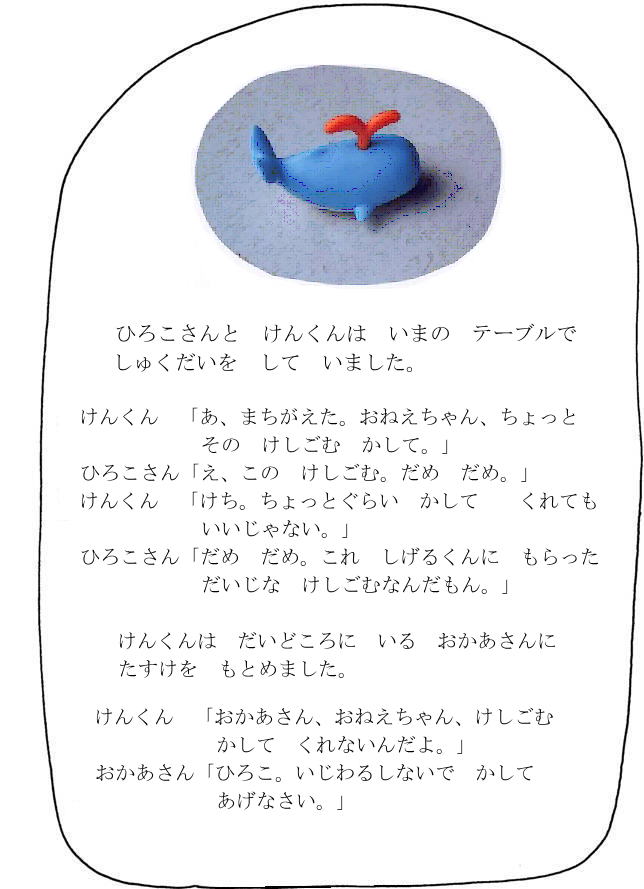 ひろこさんと　けんくんは　いまの　テーブルで
しゅくだいを　して　いました。
けんくん　「あ、まちがえた。おねえちゃん、ちょっと
その　けしごむ　かして。」
ひろこさん「え、この　けしごむ。だめ　だめ。」
けんくん　「けち。ちょっとぐらい　かして　　くれても
いいじゃない。」
ひろこさん「だめ　だめ。これ　しげるくんに　もらった
だいじな　けしごむなんだもん。」
けんくんは　だいどころに　いる　おかあさんに
たすけを　もとめました。
けんくん　「おかあさん、おねえちゃん、けしごむ
かして　くれないんだよ。」
おかあさん「ひろこ。いじわるしないで　かして
あげなさい。」